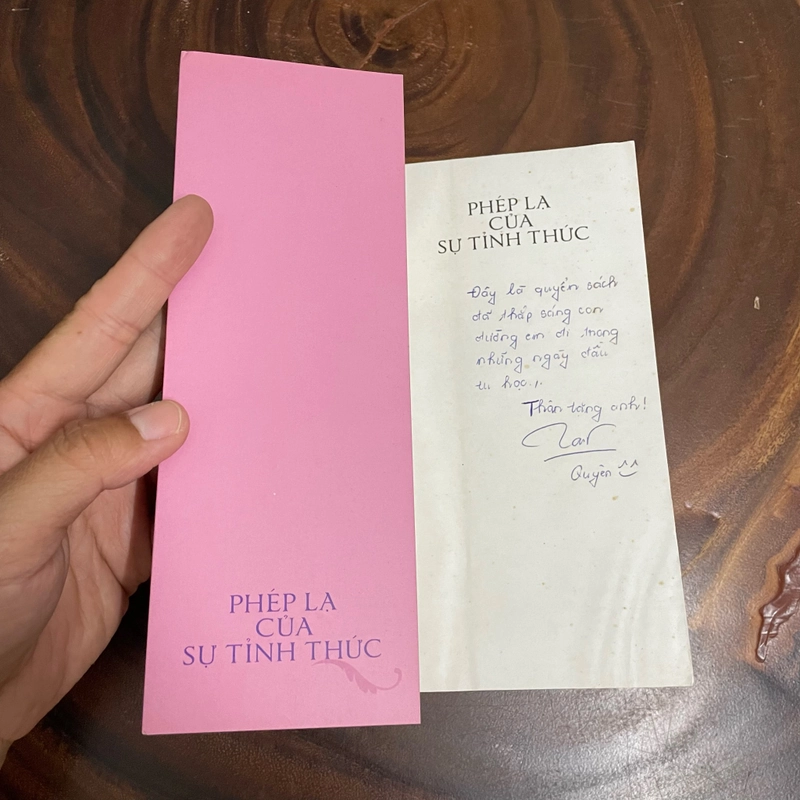 PHÉP LẠ
CỦA
SỰ TỈNH THỨC
PHÉP LẠ
CỦA
SỰ TỈNH THỨC
Đây là quyển sách
đã thắp sáng con
đường em đi trong
những ngày đầu
tu học./.
Thân tặng anh!
Quyên ^^